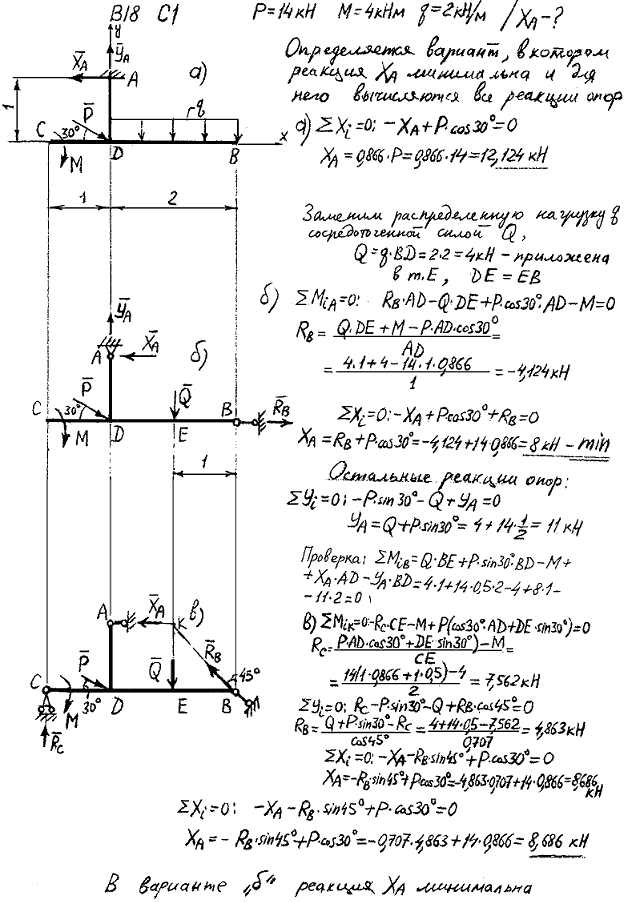 В18 С1 P=14кН M=4кНм q=2кН/м / X_A-?
Определяется вариант, в котором
реакция X_A минимальна и для
него вычисляются все реакции опор
а) ΣX_i=0: -X_A+P·cos30°=0
X_A=0,866·P=0,866·14=12,124 кН
y
X̄_A
Ȳ_A
A
а)
1
C
30°
P̄
q
M
D
B
x
1
2
Заменим распределенную нагрузку q
сосредоточенной силой Q,
Q=q·BD=2·2=4кН - приложена
в т.E, DE=EB
б) ΣM_iA=0: R_B·AD-Q·DE+P·cos30°·AD-M=0
R_B= (Q·DE+M-P·AD·cos30°)/AD =
= (4·1+4-14·1·0,866)/1 = -4,124кН
ΣX_i=0: -X_A+Pcos30°+R_B=0
X_A=R_B+Pcos30°=-4,124+14·0,866=8 кН - min
Ȳ_A
A
X̄_A
б)
P̄
Q̄
C
30°
M
D
E
B
R̄_B
1
Остальные реакции опор:
ΣY_i=0: -P·sin30°-Q+Y_A=0
Y_A=Q+P·sin30°=4+14·1/2=11 кН
Проверка: ΣM_iB=Q·BE+P·sin30°·BD-M+
+X_A·AD-Y_A·BD=4·1+14·0,5·2-4+8·1-
-11·2=0
в) ΣM_iK=0: -R_C·CE-M+P(cos30°·AD+DE·sin30°)=0
R_C= (P·(AD·cos30°+DE·sin30°)-M)/CE =
= (14(1·0,866+1·0,5)-4)/2 = 7,562кН
ΣY_i=0: R_C-P·sin30°-Q+R_B·cos45°=0
R_B= (Q+P·sin30°-R_C)/cos45° = (4+14·0,5-7,562)/0,707 = 4,863кН
ΣX_i=0: -X_A-R_B·sin45°+P·cos30°=0
X_A=-R_B·sin45°+Pcos30°=-4,863·0,707+14·0,866=8,686
кН
A
X̄_A
в)
K
R̄_B
P̄
Q̄
45°
C
M
30°
D
E
B
R̄_C
ΣX_i=0: -X_A-R_B·sin45°+P·cos30°=0
X_A=-R_B·sin45°+P·cos30°=-0,707·4,863+14·0,866=8,686 кН
В варианте „б" реакция X_A минимальна